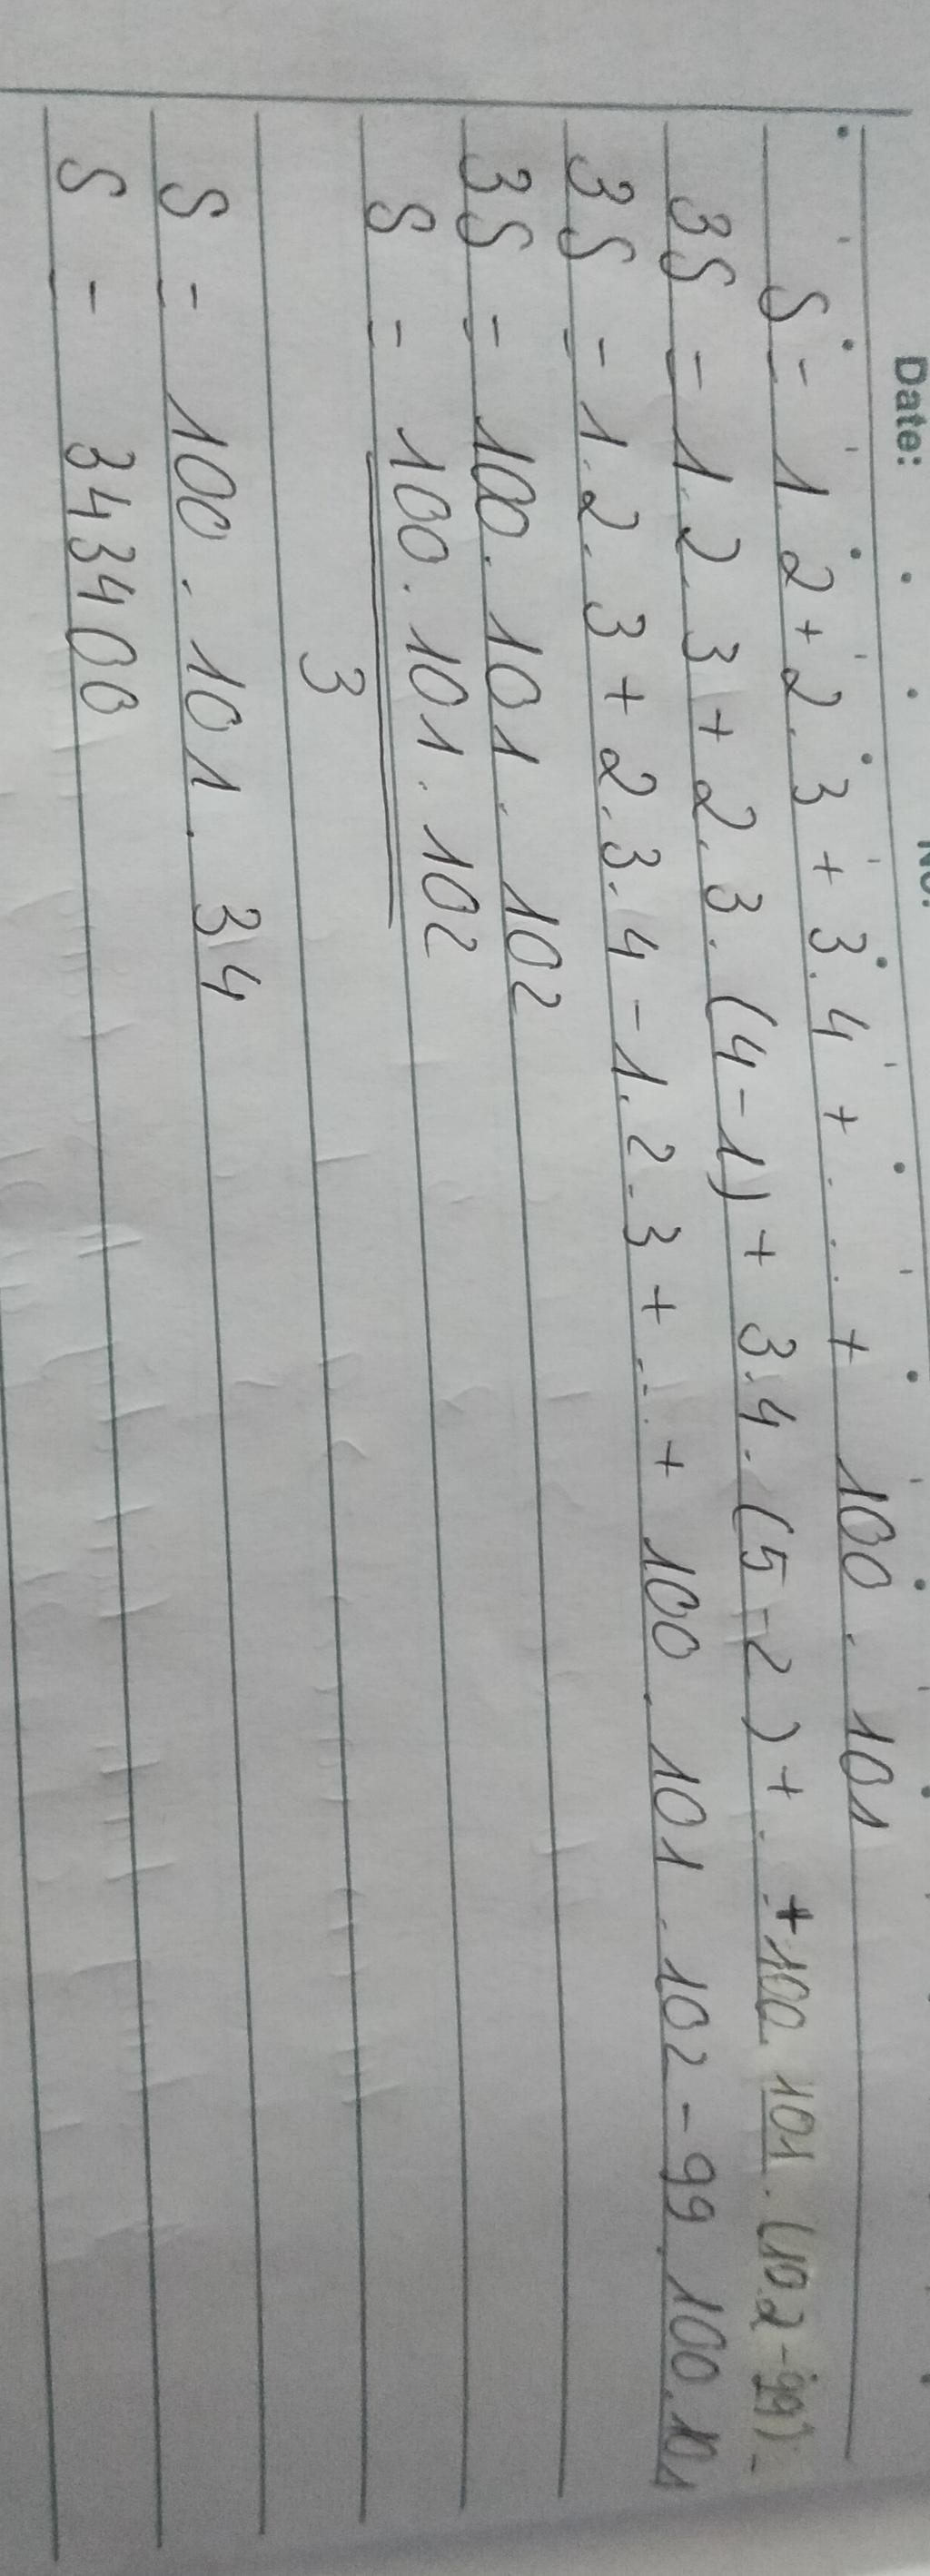 Date: No:
S = 1.2 + 2.3 + 3.4 + .... + 100.101
3S = 1.2.3 + 2.3.(4-1) + 3.4.(5-2) + .. + 100.101.(102-99)
3S = 1.2.3 + 2.3.4 - 1.2.3 + ... + 100.101.102 - 99.100.101
3S = 100.101.102
S = 100.101.102
3
S = 100.101.34
S = 343400